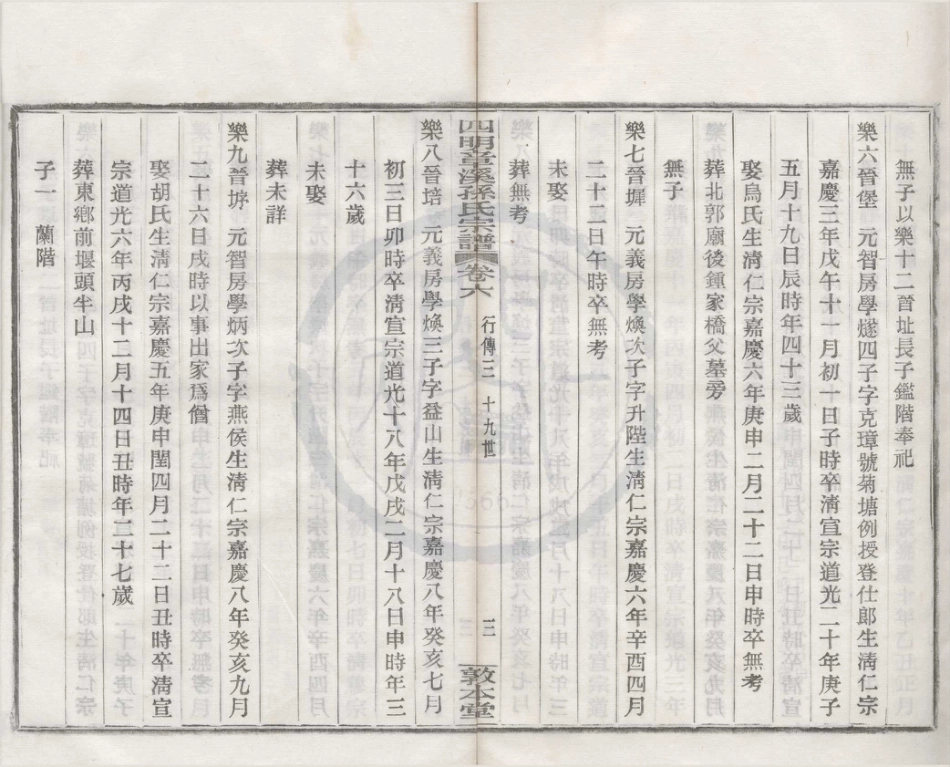 無子以樂十二首址長子鑑階奉祀
樂六晉堡 元智房學燧四子字克璋號菊塘例授登仕郎生淸仁宗
嘉慶三年戊午十一月初一日子時卒淸宣宗道光二十年庚子
五月十九日辰時年四十三歲
娶烏氏生淸仁宗嘉慶六年庚申二月二十二日申時卒無考
葬北郭廟後鍾家橋父墓旁
無子
樂七晉墀 元義房學煥次子字升陛生淸仁宗嘉慶六年辛酉四月
二十二日午時卒無考
未娶
葬無考
四明章溪孫氏宗譜 卷六 行傳三 十九世 三 敦本堂
樂八晉培 元義房學煥三子字益山生淸仁宗嘉慶八年癸亥七月
初三日卯時卒淸宣宗道光十八年戊戌二月十八日申時年三
十六歲
未娶
葬未詳
樂九晉垿 元智房學炳次子字燕侯生淸仁宗嘉慶八年癸亥九月
二十六日戌時以事出家爲僧
娶胡氏生淸仁宗嘉慶五年庚申閏四月二十二日丑時卒淸宣
宗道光六年丙戌十二月十四日丑時年二十七歲
葬東鄉前堰頭半山
子一 蘭階